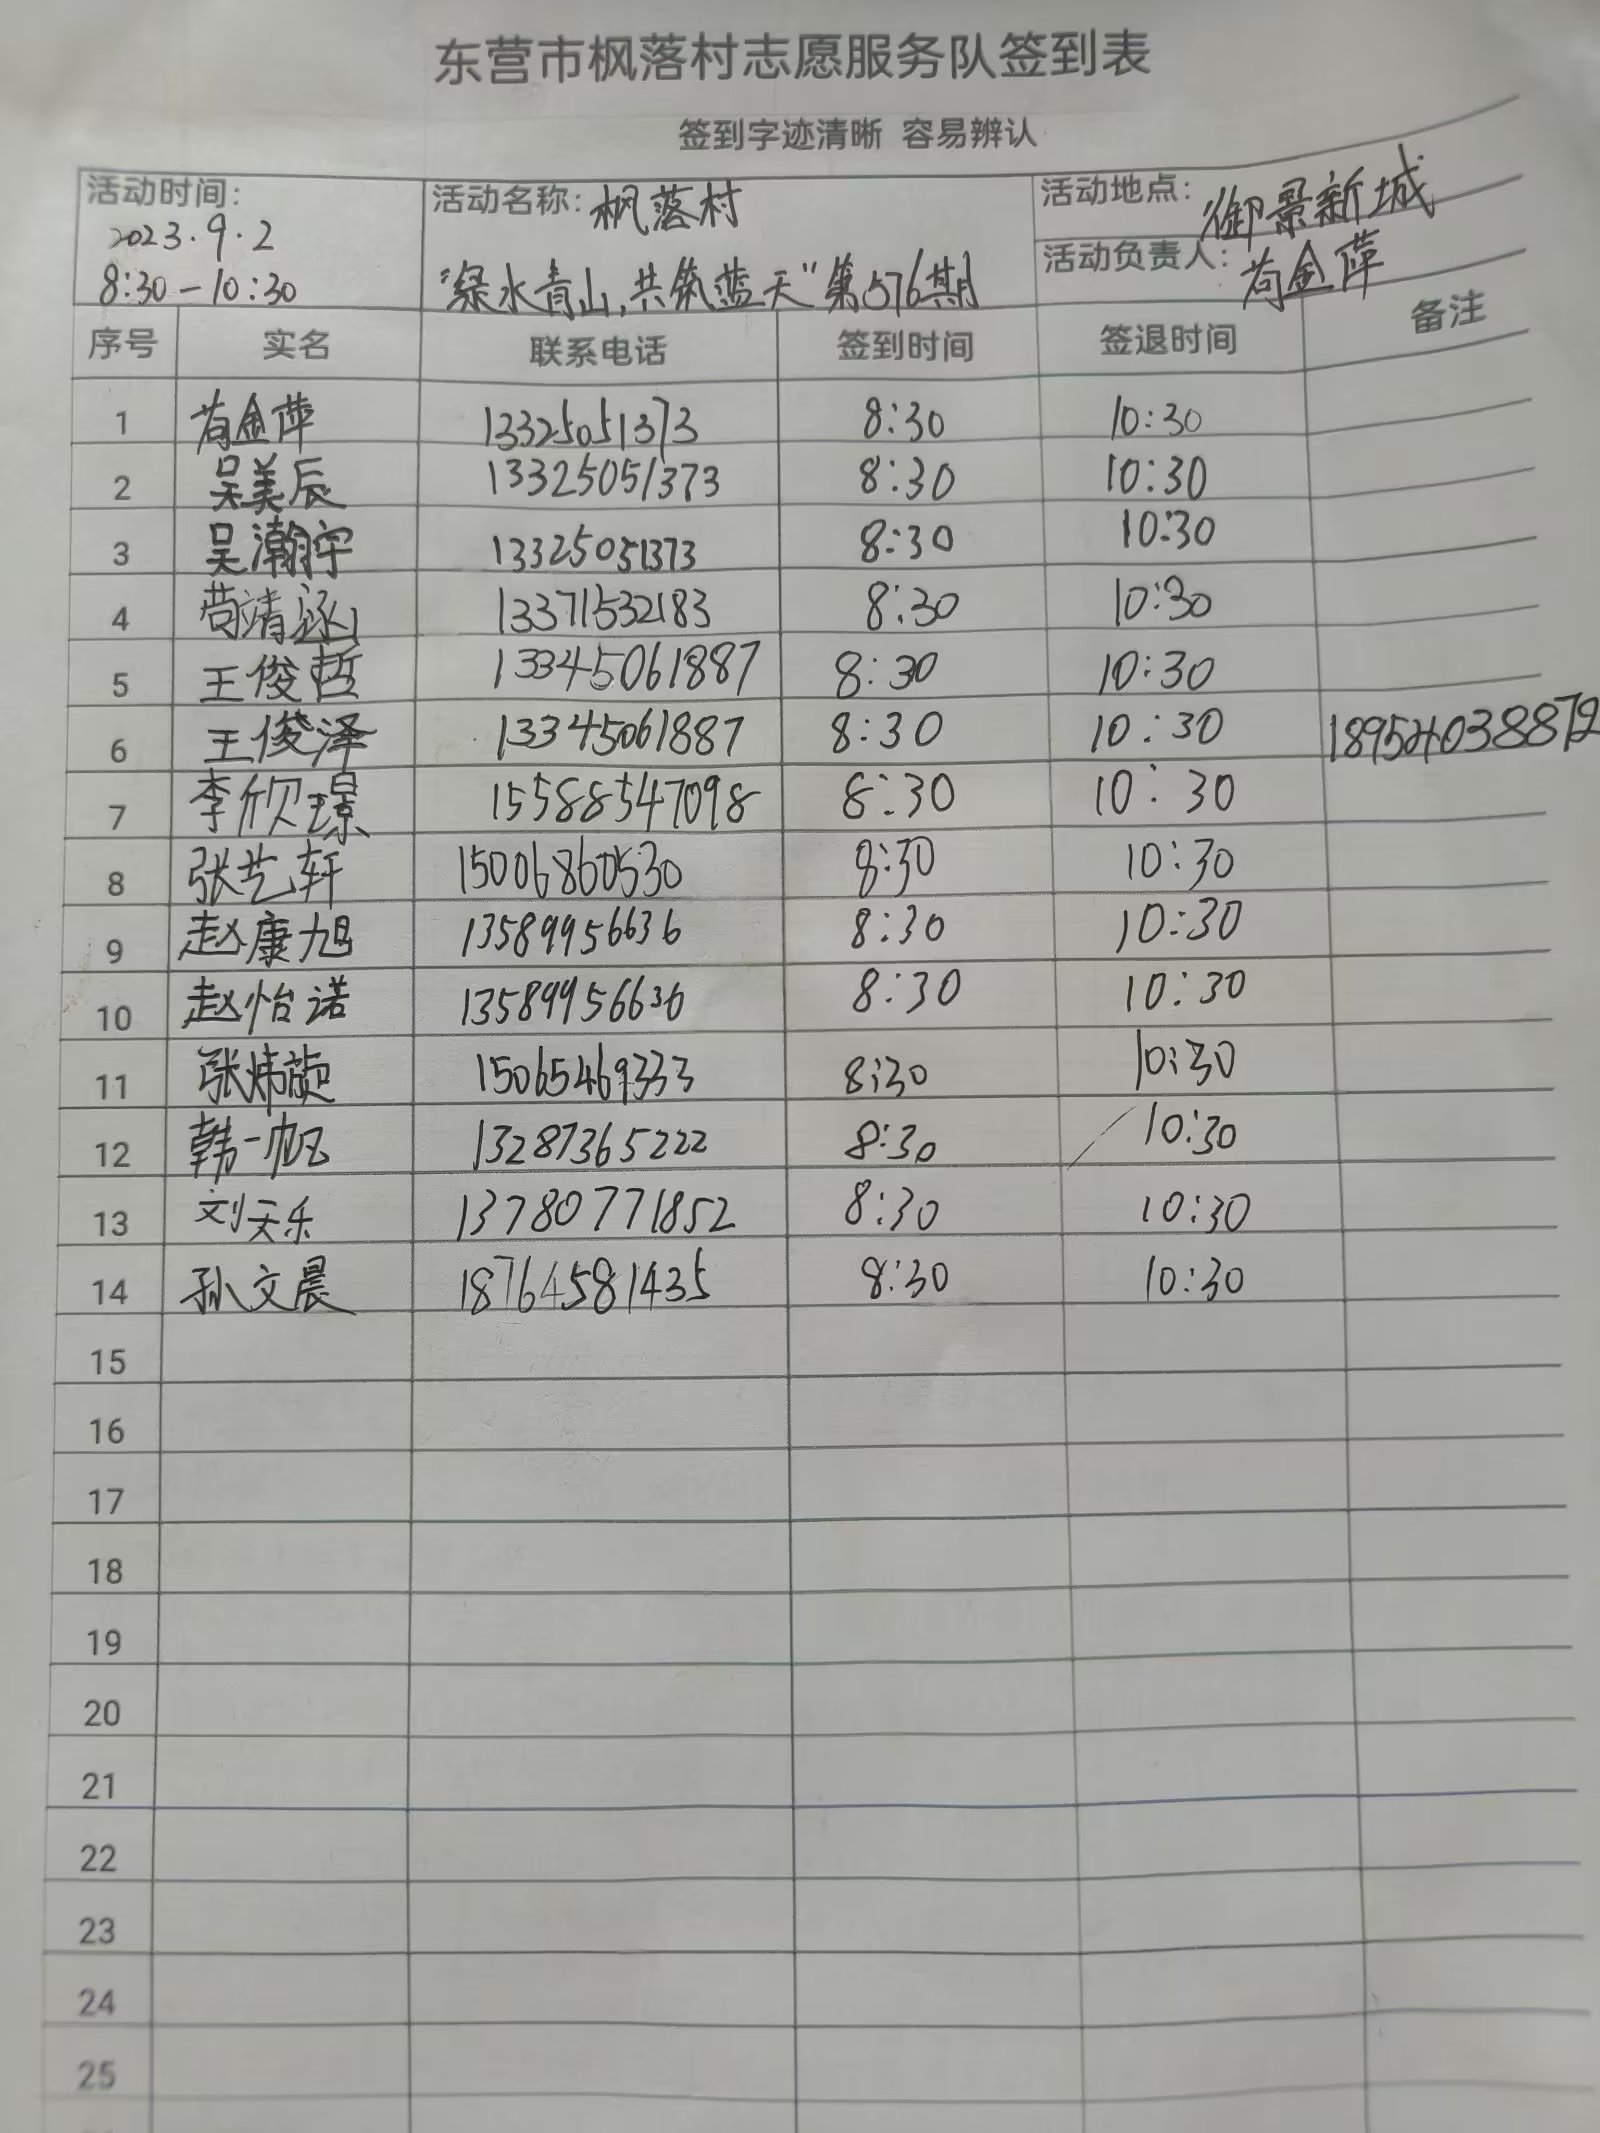 东营市枫落村志愿服务队签到表
签到字迹清晰 容易辨认
活动时间: 2023.9.2 8:30-10:30
活动名称: 枫落村
"绿水青山,共筑蓝天"第576期
活动地点: 御景新城
活动负责人: 苟金萍
序号 实名 联系电话 签到时间 签退时间 备注
1 苟金萍 13325051373 8:30 10:30
2 吴美辰 13325051373 8:30 10:30
3 吴瀚宇 13325051373 8:30 10:30
4 苟靖涵 13371532183 8:30 10:30
5 王俊哲 13345061887 8:30 10:30
6 王俊泽 13345061887 8:30 10:30 18954038872
7 李欣璟 15588547098 8:30 10:30
8 张艺轩 15006860530 8:30 10:30
9 赵康旭 13589956636 8:30 10:30
10 赵怡诺 13589956636 8:30 10:30
11 张炜旋 15065469333 8:30 10:30
12 韩一帆 13287365222 8:30 10:30
13 刘天乐 13780771852 8:30 10:30
14 孙文晨 18764581435 8:30 10:30
15
16
17
18
19
20
21
22
23
24
25